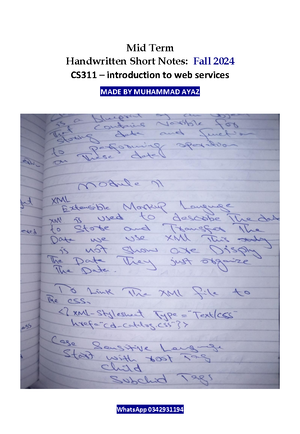 Mid Term
Handwritten Short Notes: Fall 2024
CS311 – introduction to web services
MADE BY MUHAMMAD AYAZ
is a blueprint of an object
contains variable for
storing data and function
to performing operation
on these data
Module 11
XML
Extensible Markup Language
XML is used to describe the data
to Store and Transfer The
Data we use XML This
is not Show are Display
The Data They just organize
The Data.
To Link The XML file to
The css.
<?xml-stylesheet Type = "Text/css"
href="cd-catalog.css"?>
Case Sensitive Language
Start with root Tag
Child
Subchild Tag!
WhatsApp 0342931194